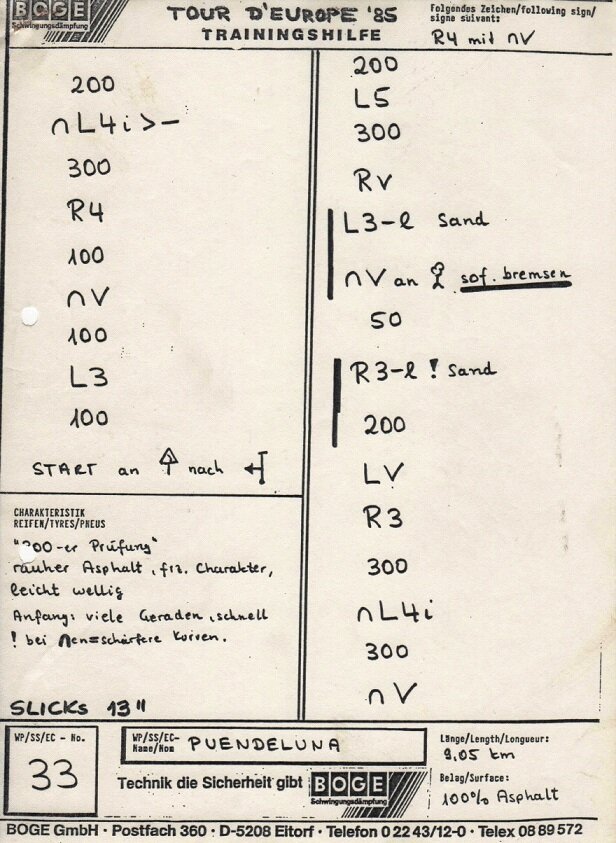 BOGE
Schwingungsdämpfung
TOUR D'EUROPE '85
TRAININGSHILFE
Folgendes Zeichen/following sign/
signe suivant:
R4 mit ∩V
200
∩L4i>–
300
R4
100
∩V
100
L3
100
START an nach
CHARAKTERISTIK
REIFEN/TYRES/PNEUS
"200-er Prüfung"
rauher Asphalt, frz. Charakter,
leicht wellig
Anfang: viele Geraden, schnell
! bei ∩en=schärfere Kurven.
SLICKs 13"
200
L5
300
RV
L3-l Sand
∩V an sof. bremsen
50
R3-l ! Sand
200
LV
R3
300
∩L4i
300
∩V
WP/SS/EC - No.
33
WP/SS/EC-
Name/Nom PUENDELUNA
Technik die Sicherheit gibt BOGE
Schwingungsdämpfung
Länge/Length/Longueur:
9,05 km
Belag/Surface:
100% Asphalt
BOGE GmbH · Postfach 360 · D-5208 Eitorf · Telefon 0 22 43/12-0 · Telex 08 89 572